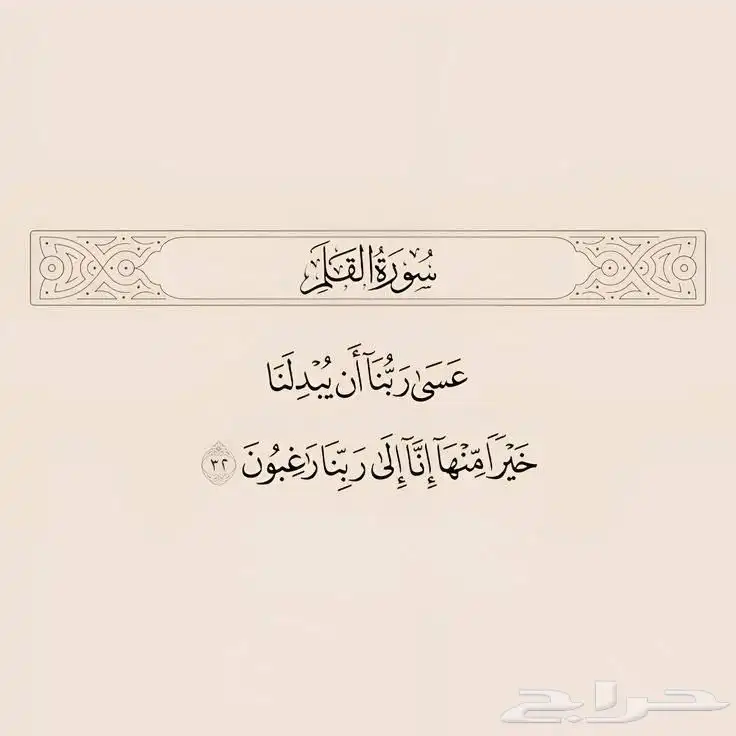 سُورَةُ القَلَمِ
عَسَىٰ رَبُّنَآ أَن يُبْدِلَنَا
خَيْرًا مِّنْهَآ إِنَّآ إِلَىٰ رَبِّنَا رَٰغِبُونَ ٣٢
حراج